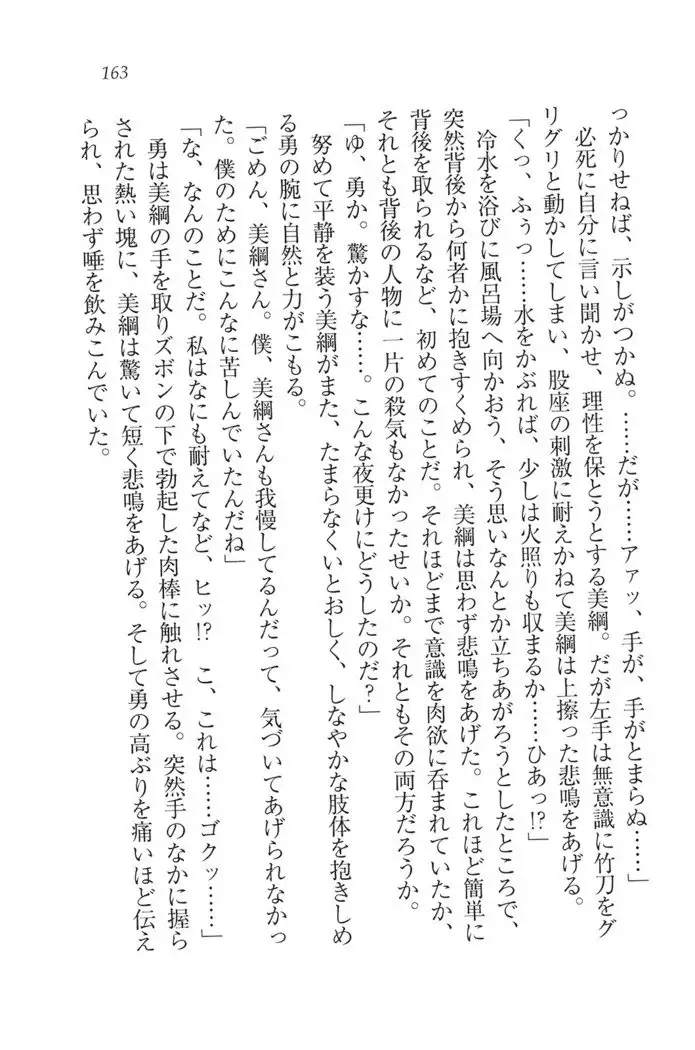 163
っかりせねば、示しがつかぬ。……だが……アァッ、手が、手がとまらぬ……」
必死に自分に言い聞かせ、理性を保とうとする美綱。だが左手は無意識に竹刀をグ
リグリと動かしてしまい、股座の刺激に耐えかねて美綱は上擦った悲鳴をあげる。
「くっ、ふぅっ……水をかぶれば、少しは火照りも収まるか……ひあっ!?」
冷水を浴びに風呂場へ向かおう、そう思いなんとか立ちあがろうとしたところで、
突然背後から何者かに抱きすくめられ、美綱は思わず悲鳴をあげた。これほど簡単に
背後を取られるなど、初めてのことだ。それほどまで意識を肉欲に呑まれていたか、
それとも背後の人物に一片の殺気もなかったせいか。それともその両方だろうか。
「ゆ、勇か。驚かすな……。こんな夜更けにどうしたのだ？」
努めて平静を装う美綱がまた、たまらなくいとおしく、しなやかな肢体を抱きしめ
る勇の腕に自然と力がこもる。
「ごめん、美綱さん。僕、美綱さんも我慢してるんだって、気づいてあげられなかっ
た。僕のためにこんなに苦しんでいたんだね」
「な、なんのことだ。私はなにも耐えてなど、ヒッ!?　こ、これは……ゴクッ……」
勇は美綱の手を取りズボンの下で勃起した肉棒に触れさせる。突然手のなかに握ら
された熱い塊に、美綱は驚いて短く悲鳴をあげる。そして勇の高ぶりを痛いほど伝え
られ、思わず唾を飲みこんでいた。